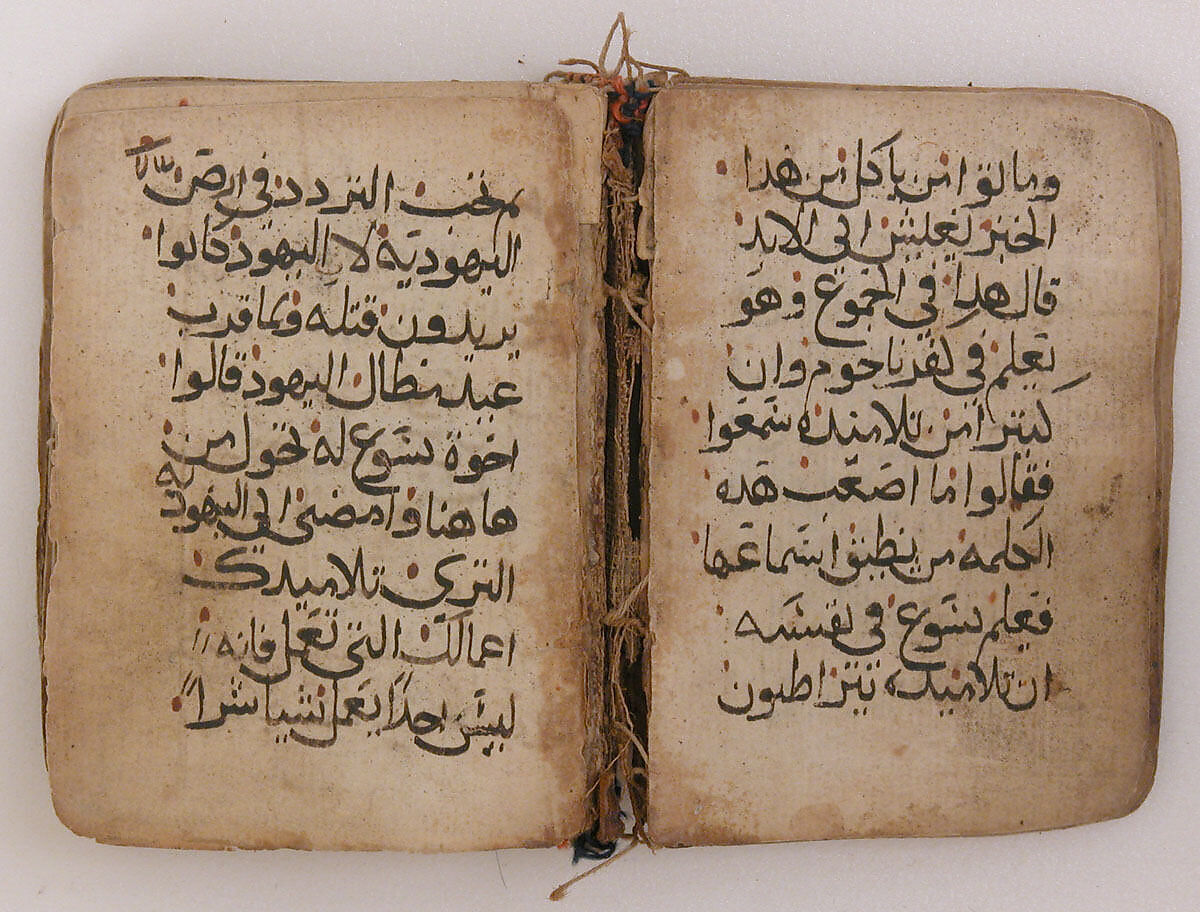 وماتوا من ياكل من هدا
الخبز يعيش الى الابد
قال هدا في الجموع وهو
يعلم في كفرناحوم وان
كثيرا من تلاميده سمعوا
فقالوا ما اصعب هده
الكلمه من يطيق استماعها
فعلم يسوع في نفسه
ان تلاميده يتراطنون
يحب التردد في ارض
اليهودية لان اليهود كانوا
يريدون قتله وكما قرب
عيد مظال اليهود قالوا
اخوة يسوع له تحول من
هاهنا وامضى الى اليهوديه
لترى تلاميدك
اعمالك التي تعمل فانه
ليس احدا يعمل شيا سرا